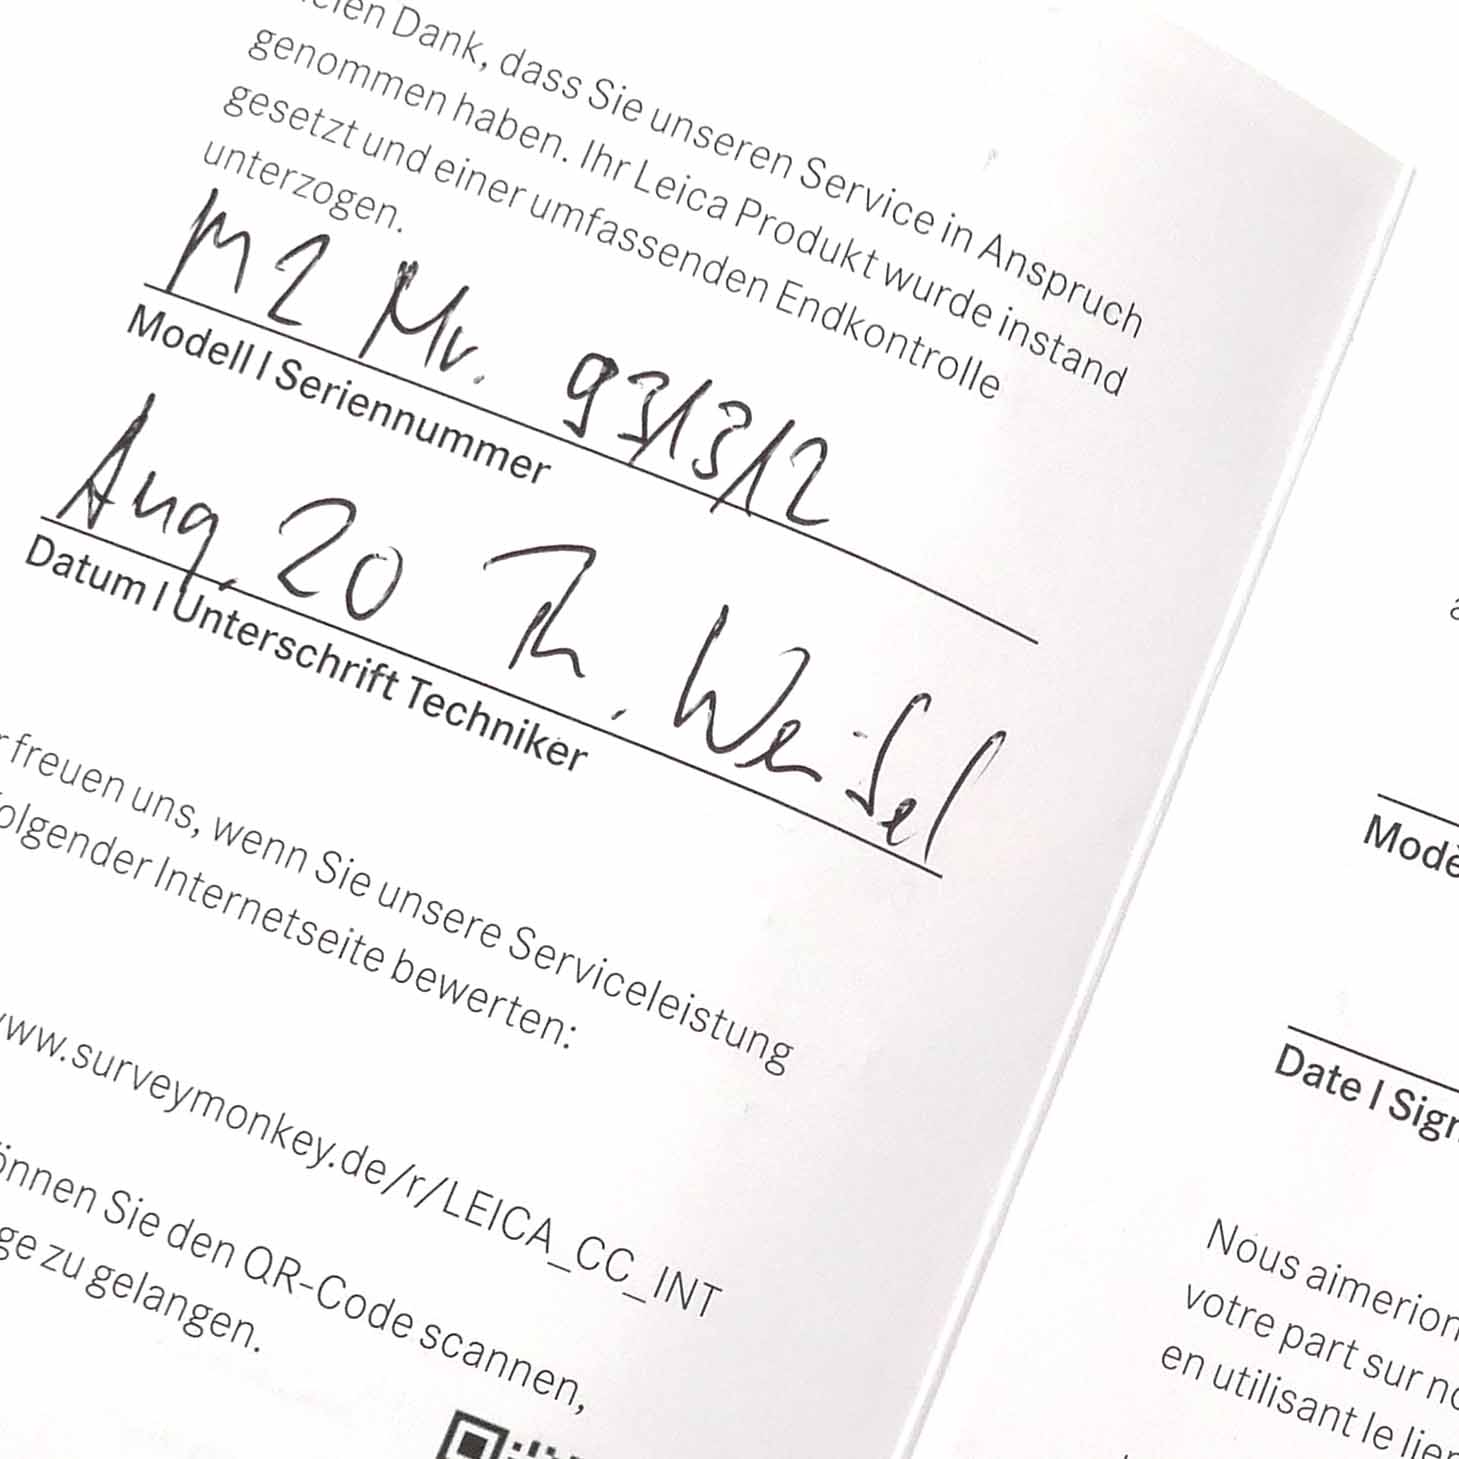 Dank, dass Sie unseren Service in Anspruch
genommen haben. Ihr Leica Produkt wurde instand
gesetzt und einer umfassenden Endkontrolle
unterzogen.
M2 Nr. 931312
Modell | Seriennummer
Aug. 20 Th. Weisel
Datum | Unterschrift Techniker
freuen uns, wenn Sie unsere Serviceleistung
folgender Internetseite bewerten:
www.surveymonkey.de/r/LEICA_CC_INT
können Sie den QR-Code scannen,
zu gelangen.
Date | Sign
Nous
votre part sur
en utilisant le